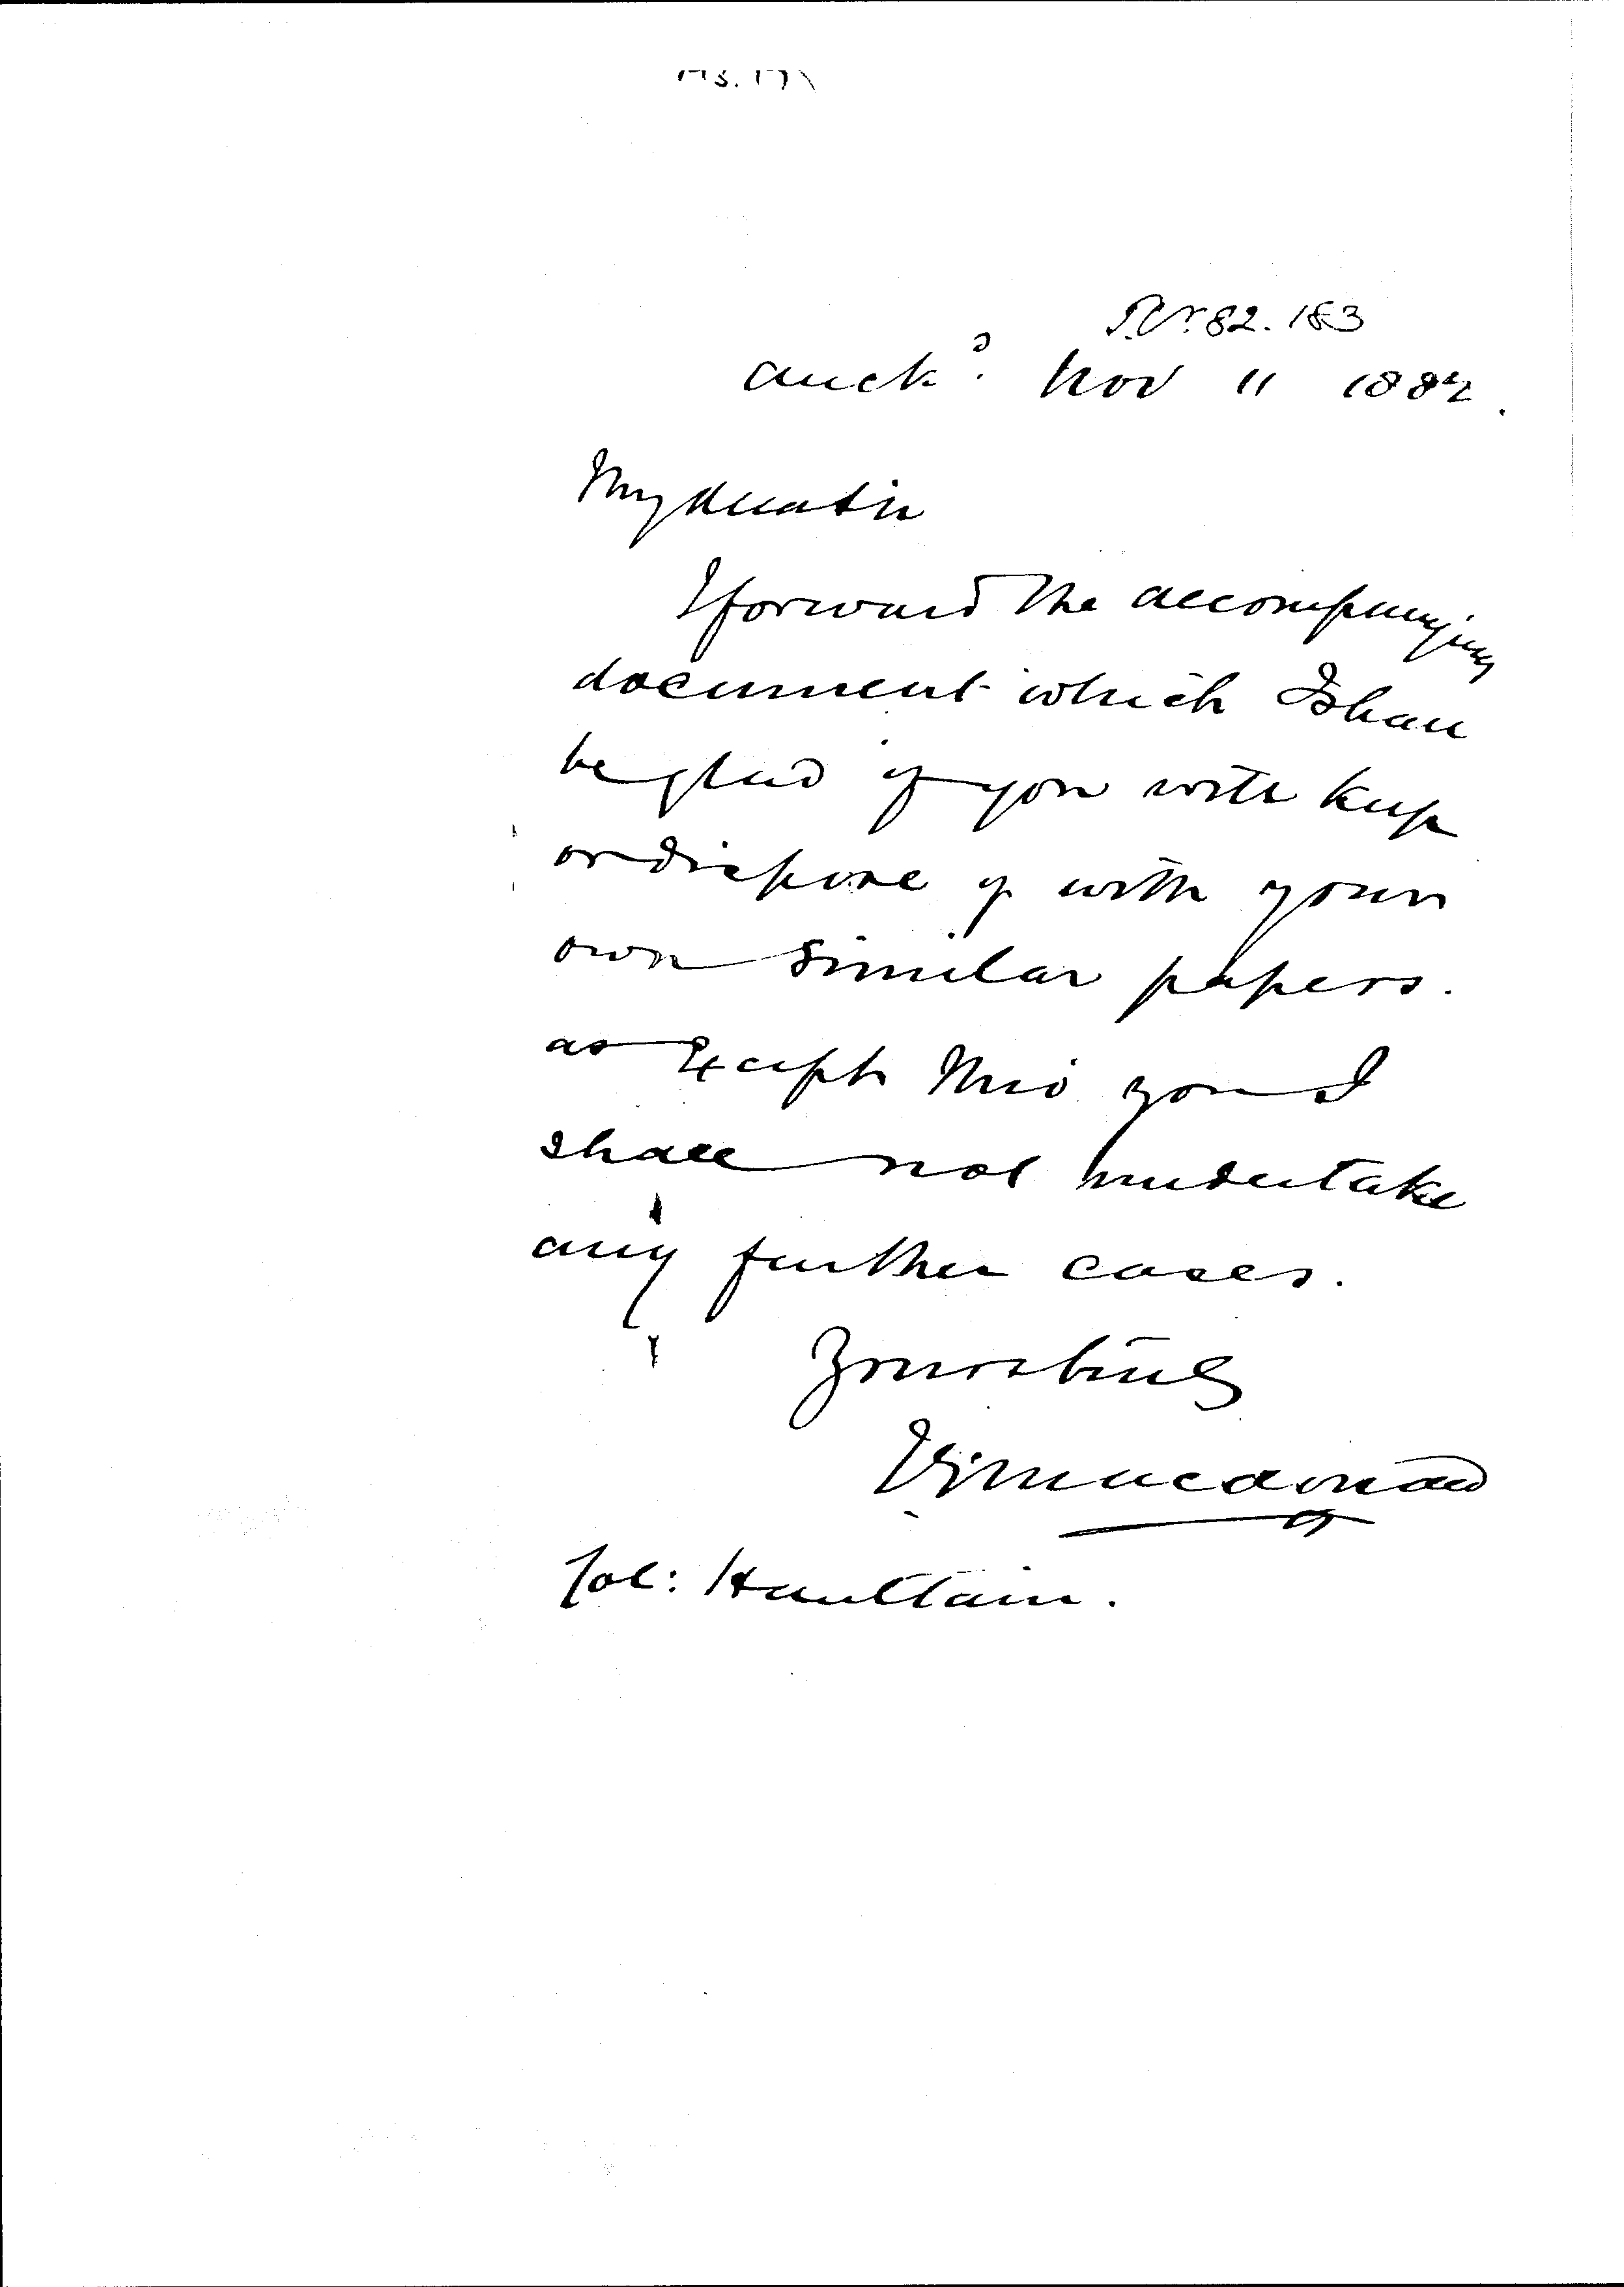 82.183
Auckd. Nov 11 1882.
My dear Sir
I forward the accompanying
document which I shall
be glad if you will keep
or dispose of with your
own similar papers.
as except this you I
shall not undertake
any further cases.
Yours truly
Macdonald
Col: Haultain.